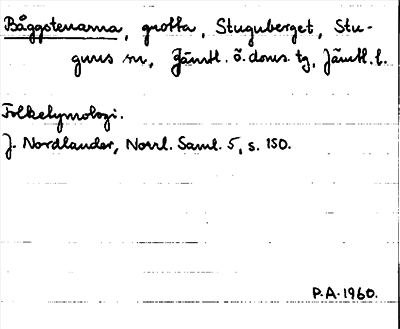 Båggstenarna, grotta, Stuguberget, Stu-
guns sn, Jämtl. ö. doms. tg, Jämtl. l.
Folketymologi.
J. Nordlander, Norrl. Saml. 5, s. 150.
P.A. 1960.